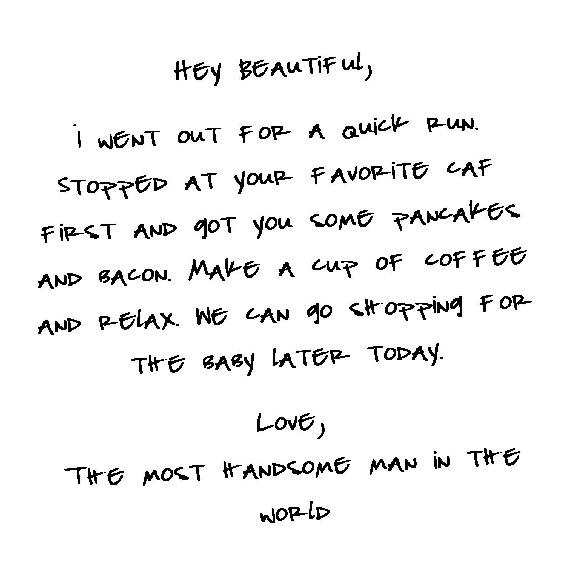 Hey Beautiful,
i went out for a quick run.
Stopped at your favorite caf
first and got you some pancakes
and bacon. Make a cup of coffee
and relax. We can go shopping for
the baby later today.
Love,
The most handsome man in the
world